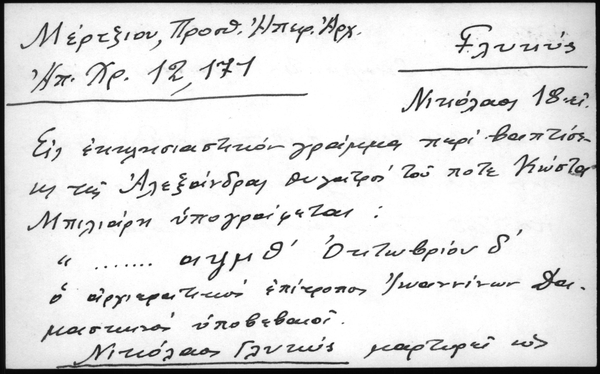 Μέρτζιου, Προσθ. Ἠπειρ. Ἀρχ.
Γλυκύς
Ἠπ. Χρ. 12, 171
Νικόλαος 18
Εἰς ἐκκλησιαστικόν γράμμα περί βαπτίσε-
ως τῆς Ἀλεξάνδρας θυγατρός τοῦ ποτε Κώστα
Μπιλιάρη ὑπογράφεται :
" ....... αψμθ' Ὀκτωβρίου δ'
ὁ ἀρχιερατικός ἐπίτροπος Ἰωαννίνων Δα-
μασκηνός ὑποβεβαιοῖ.
Νικόλαος Γλυκύς μαρτυρεῖ ὡς